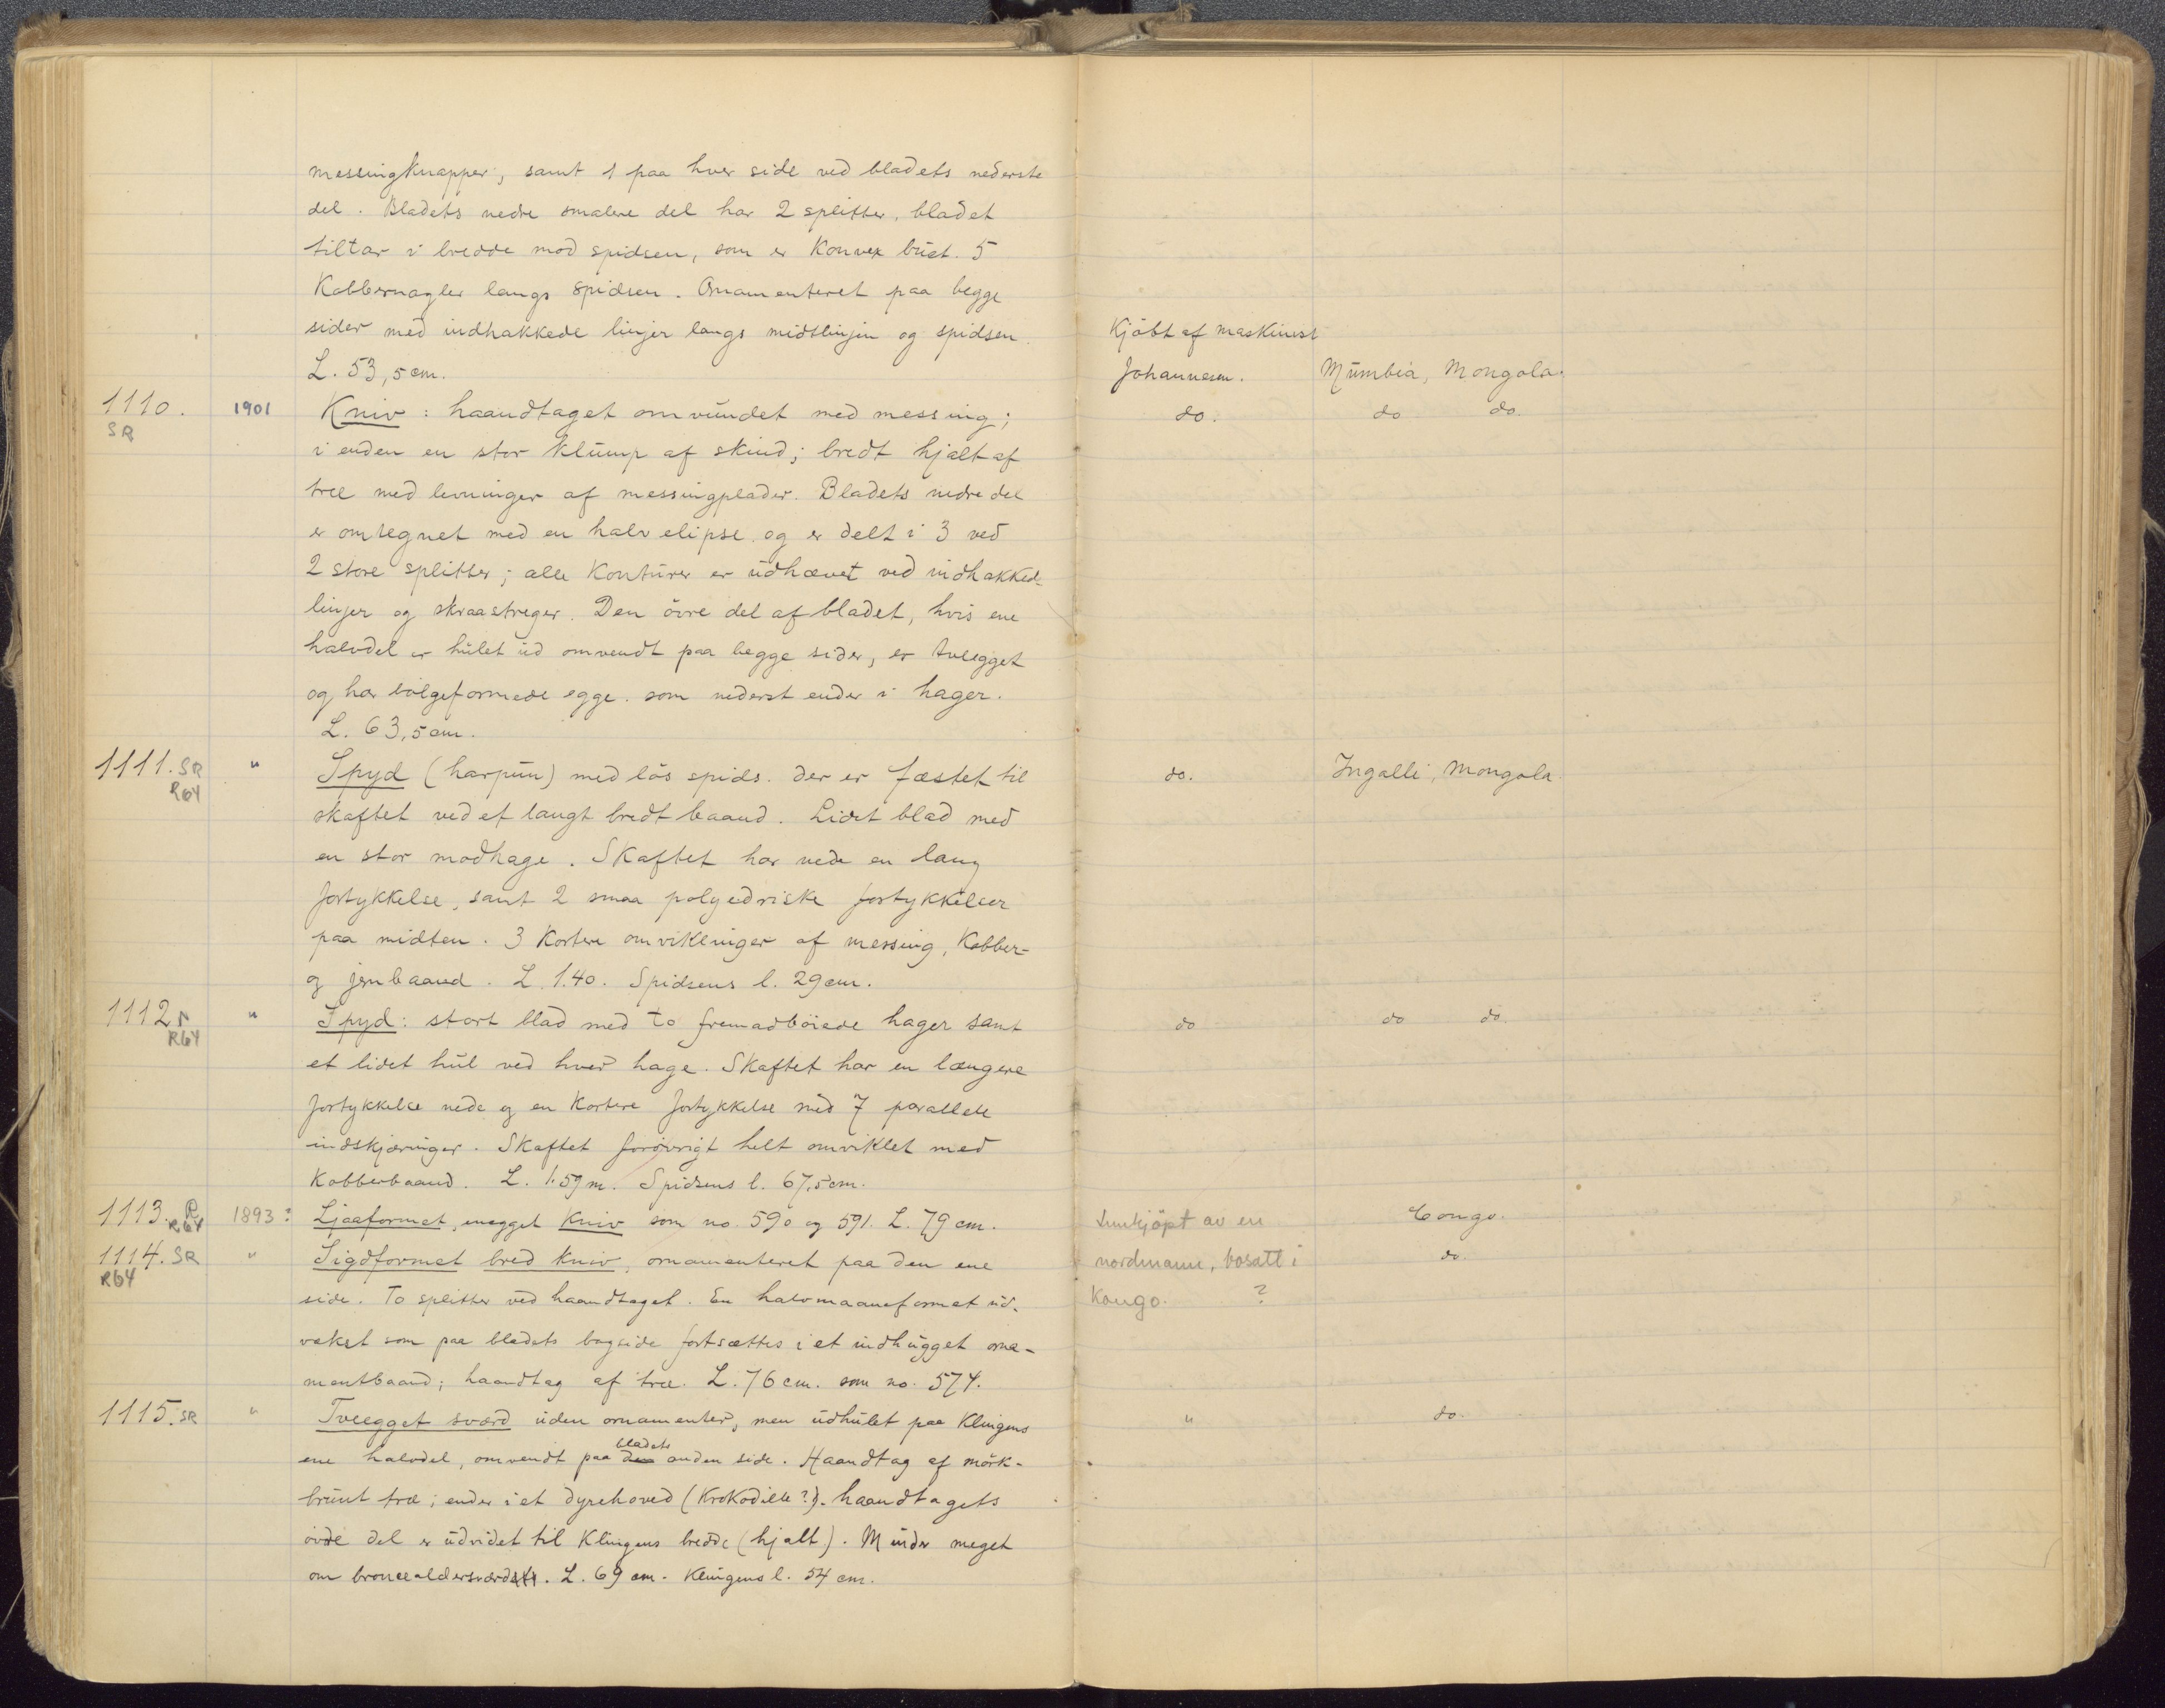 messingknapper, samt 1 paa hver side ved bladets nederste
del. Bladets nedre smalere del har 2 splitter, bladet
tiltar i bredde mod spidsen, som er Konvex buet. 5
Kobbernagler langs spidsen. Ornamenteret paa begge
sider med indhakkede linjer langs midtlinjen og spidsen. Kjöbt af maskinist
L. 53,5 cm. Johannesen. Mumbia, Mongala.
1110. 1901 Kniv: haandtaget omvundet med messing; do. do do.
SR i enden en stor klump af skind; bredt hjalt af
træ med levninger af messingplader. Bladets nedre del
er omtegnet med en halv elipse og er delt i 3 ved
2 store splitter; alle Konturer er udhævet ved indhakked-
linjer og skraastreger. Den övre del af bladet, hvis ene
halvdel er hulet ud omvendt paa begge sider, er tveegget
og har bölgeformede egge som nederst ender i hager.
L. 63,5 cm.
1111. SR " Spyd (harpun) med lös spids der er fæstet til do. Ingalli, Mongala.
R64 skaftet ved et langt bredt baand. Lidet blad med
en stor modhage. Skaftet har nede en lang
fortykkelse, samt 2 smaa polyedriske fortykkelser
paa midten. 3 Kortere omviklinger af messing, Kobber-
og jernbaand. L. 1.40. Spidsens l. 29 cm.
1112 " Spyd: stort blad med to fremadböiede hager samt do do do.
R64 et lidet hul ved hver hage. Skaftet har en længere
fortykkelse nede og en Kortere fortykkelse med 7 parallele
indskjæringer. Skaftet forövrigt helt omviklet med
Kobberbaand. L. 1.59 m. Spidsens l. 67,5 cm.
1113. R R64 1893: Ljaaformet, enegget Kniv som no. 590 og 591. L. 79 cm. Innkjöpt av en Congo.
1114. SR " Sigdformet bred kniv, ornamenteret paa den ene nordmann, bosatt i do.
R64 side. To splitter ved haandtaget. En halvmaaneformet ud- Kongo. ?
vekst som paa bladets bagside fortsættes i et indhugget orna-
mentbaand; haandtag af træ. L. 76 cm. som no. 574.
1115. SR " Tveegget sværd uden ornamenter, men udhulet paa Klingens " do.
ene halvdel, omvendt paa den bladets anden side. Haandtag af mörk-
brunt træ; ender i et dyrehoved (Krokodille?). haandtagets
övre del er udvidet til Klingens bredde (hjalt). Minder meget
om broncealdersværd. L. 69 cm. Klingens l. 54 cm.